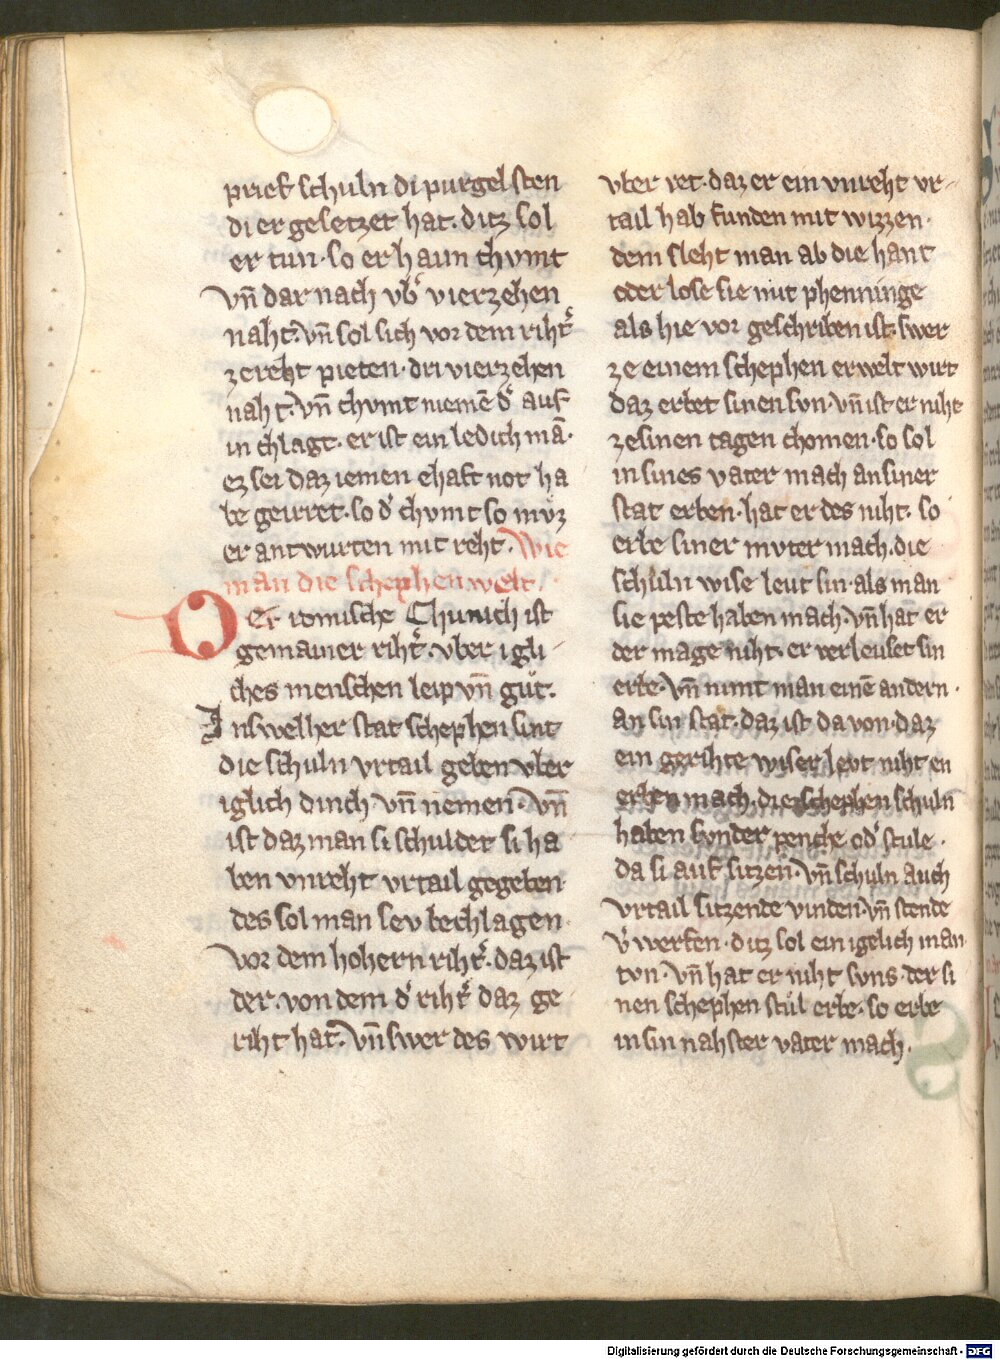 prief schuln di purgel sten
di er gesetzet hat. ditz sol
er tun. so er haun chvmt
Vn̄ dar nach vb̓ vierzehen
naht. vn̄ sol sich vor dem rihtͤ
ze reht pieten. dri vierzehen
naht. vn̄ chvmt niemē d̓ auf
in chlagt. er ist ein ledich mā.
ez sei daz iemen ehaft not ha
be geirret. so d̓ chvmt so mvͤz
er antwurten mit reht. Wie
man die schephen welt.
Der romische Chunich ist
gemainer riht̓. vber igli
ches menschen leip vn̄ guͤt.
In swelher stat schephen sint
die schuln vrtail geben vber
iglich dinch vn̄ nemen. vn̄
ist daz man si schuldet si ha
ben vnreht vrtail gegeben
des sol man sev bechlagen
vor dem hohern riht̓. daz ist
der. von dem d̓ riht̓ daz ge
riht hat. Vn̄ swer des wirt
vber ret. daz er ein vnreht vr-
tail hab funden mit wizzen.
dem sleht man ab die hant
oder lose sie mit phenninge
als hie vor geschriben ist. swer
ze einem schephen erwelt wirt
daz erbet sinen svn. vn̄ ist er niht
ze sinen tagen chomen. so sol
in sines vater mach an siner
stat erben. hat er des niht. so
erbe siner mvter mach. die
schuln wise leut sin. als man
sie peste haben mach. vn̄ hat er
der mage niht. er verleuset sin
erbe. vn̄ nimt man einē andern.
an sin stat. daz ist da von. daz
ein gerihte wiser levt niht en
mach. die schephen schuln
haben svnder penche od̓ stule.
da si auf sitzen. vn̄ schuln auch
vrtail sitzende vinden. vn̄ stende
v̓ werfen. ditz sol ein igelich man
tvn. vn̄ hat er niht svns. der si
nen schephen stuͤl erbe. so erbe
in sin nahster vater mach.
Digitalisierung gefördert durch die Deutsche Forschungsgemeinschaft - DFG